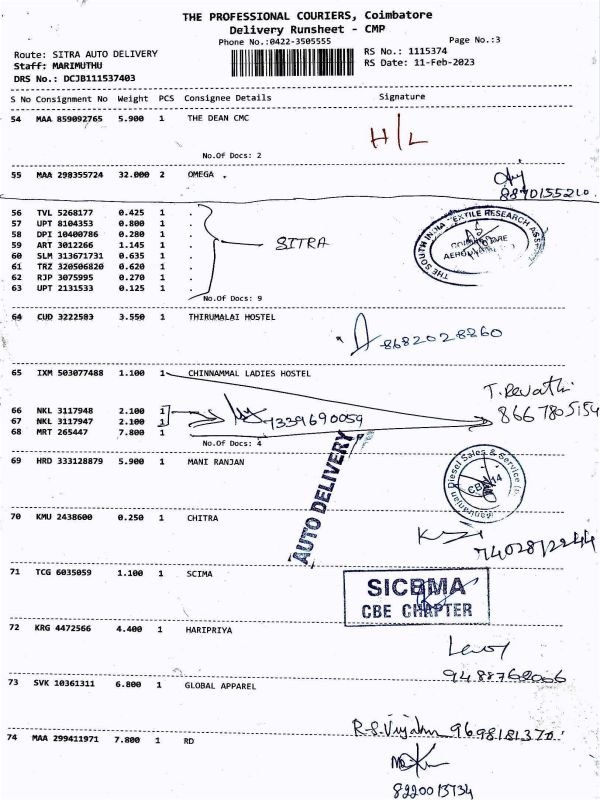 THE PROFESSIONAL COURIERS, Coimbatore
Delivery Runsheet - CMP
Phone No.:0422-3505555
Page No.:3
Route: SITRA AUTO DELIVERY
RS No.: 1115374
Staff: MARIMUTHU
RS Date: 11-Feb-2023
DRS No.: DCJB111537403
S No Consignment No Weight PCS Consignee Details Signature
54 MAA 859092765 5.900 1 THE DEAN CMC
H/L
No.Of Docs: 2
55 MAA 298355724 32.000 2 OMEGA .
8870155210
56 TVL 5268177 0.425 1 .
57 UPT 8104353 0.800 1 .
58 DPI 10400786 0.280 1 .
59 ART 3012266 1.145 1 . SITRA
60 SLM 313671731 0.635 1 .
61 TRZ 320506820 0.620 1 .
62 RJP 3075995 0.270 1 .
63 UPT 2131533 0.125 1 .
THE SOUTH INDIA TEXTILE RESEARCH ASS
No.Of Docs: 9
64 CUD 3222583 3.550 1 THIRUMALAI HOSTEL
8682028260
65 IXM 503077488 1.100 1 CHINNAMMAL LADIES HOSTEL
T. Revathi
8667805154
66 NKL 3117948 2.100 1
67 NKL 3117947 2.100 1
7339690059
68 MRT 265447 7.800 1
No.Of Docs: 4
AUTO DELIVERY
69 HRD 333128879 5.900 1 MANI RANJAN
Diesel Sales & Service
CBE-14
70 KMU 2438600 0.250 1 CHITRA
71 TCG 6035059 1.100 1 SCIMA
SICBMA
CBE CHAPTER
72 KRG 4472566 4.400 1 HARIPRIYA
9488762006
73 SVK 10361311 6.800 1 GLOBAL APPAREL
9698181370
74 MAA 299411971 7.800 1 RD
8220013734